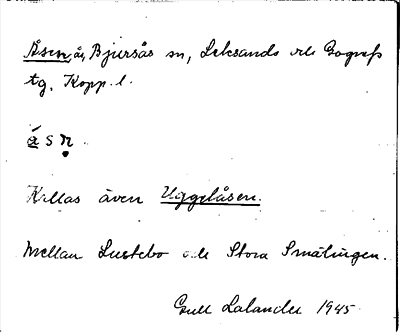 Åsen, ås, Bjursås sn, Leksands och Gagnefs
tg, Kopp. l.
å s n
Kallas även Uggelåsen.
Mellan Lustebo och Stora Smälingen.
Gull Lalander 1945